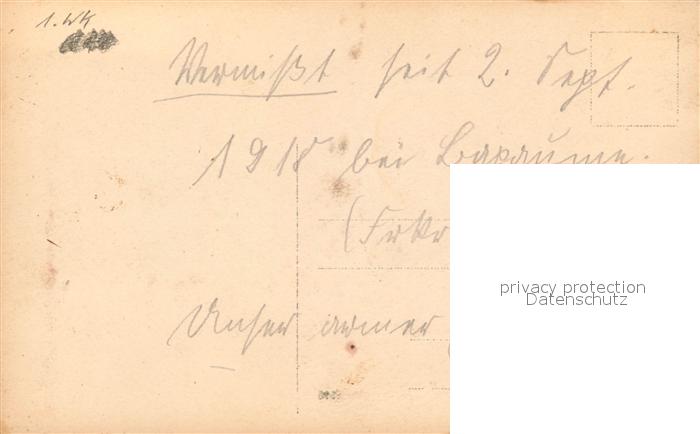 1. WK
Vermißt seit 2. Sept.
1918 bei Bapaume.
(Frkr
Unser armer
privacy protection
Datenschutz